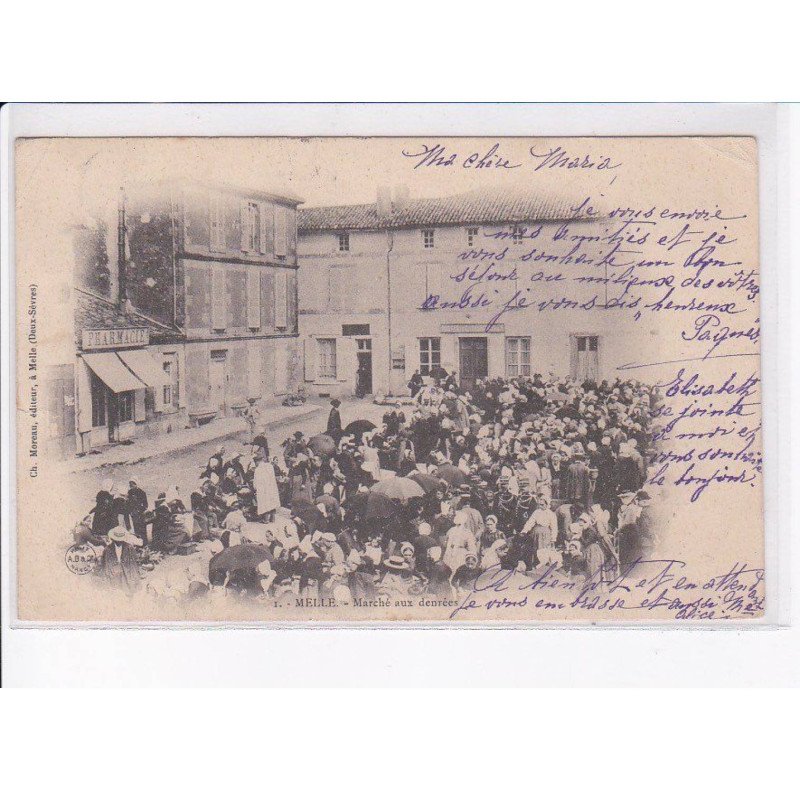 Ma chère Maria
je vous envoie
mes amitiés et je
vous souhaite un bon
séjour au milieux des vôtres
aussi je vous dis "heureux
Pâques"
Elisabeth
se jointe
à moi et
vous souhaite
le bonjour.
A bientôt et en attendant
je vous embrasse et aussi Me
Alice
PHARMACIE
Ch. Moreau, éditeur, à Melle (Deux-Sèvres)
1. - MELLE. - Marché aux denrées